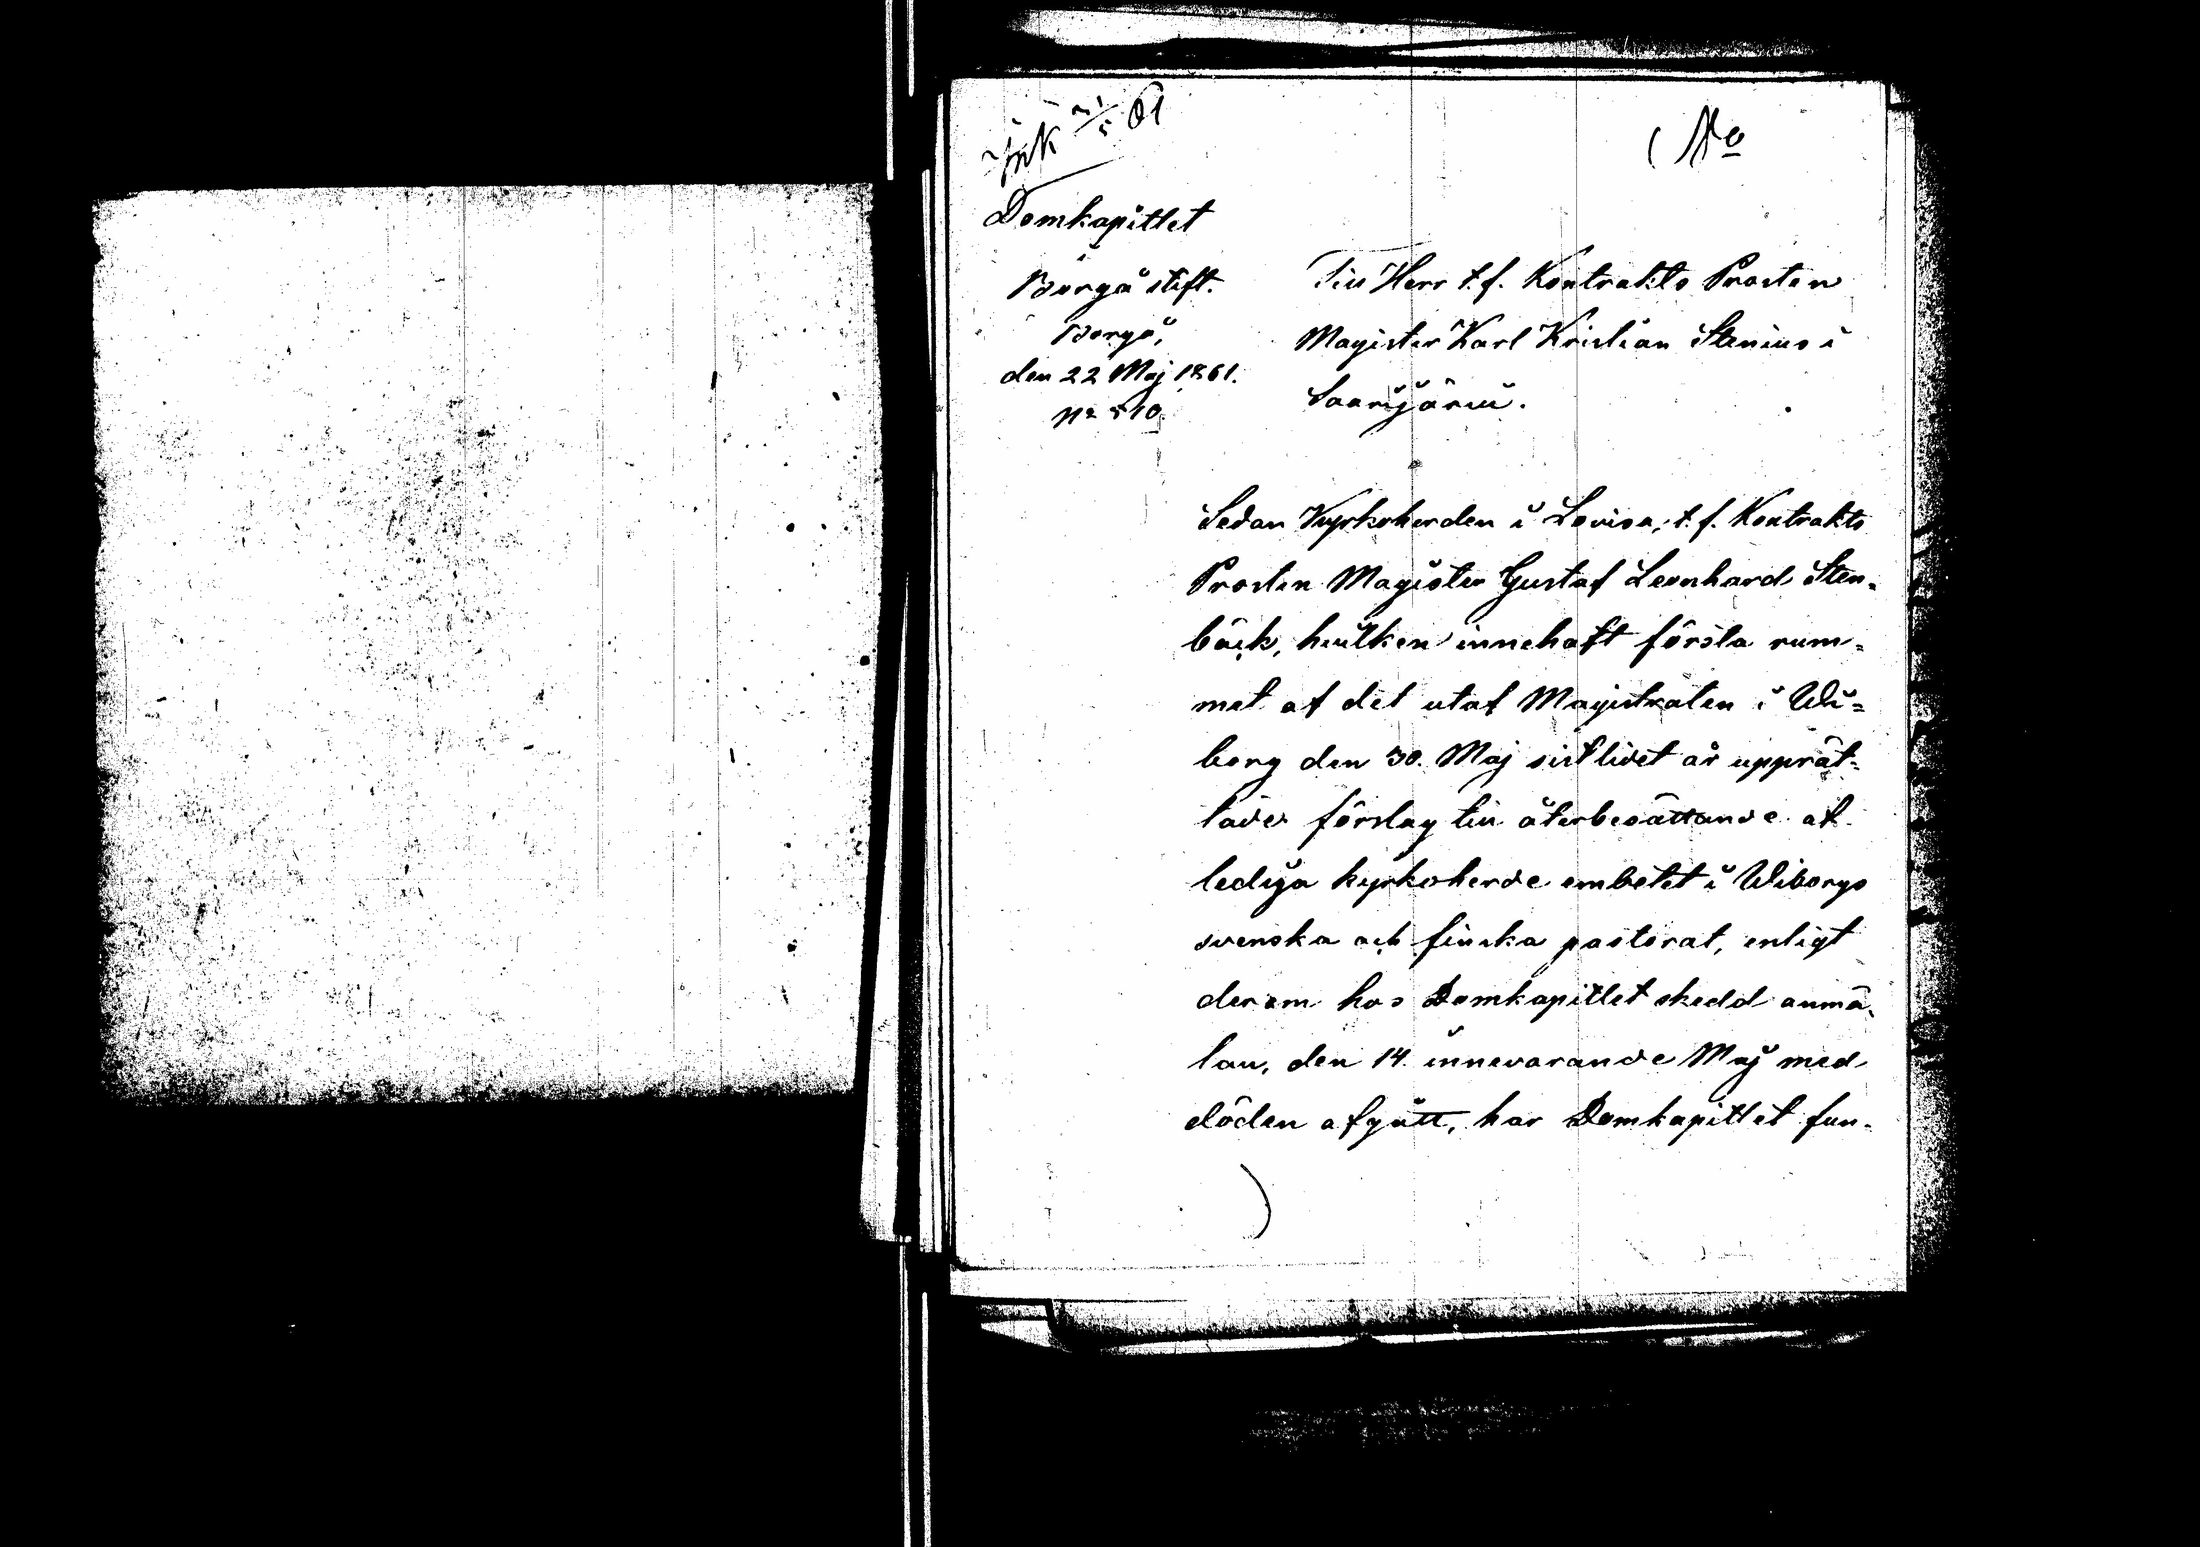 Ink 31/5 61
No
Domkapitlet
Borgå stift.
Borgå,
den 22 Maj 1861.
No 510.
Till Herr t.f. Kontrakts Prosten
Magister Karl Kristian Stenius i
Saarijärvi.
Sedan Kyrkoherden i Lovisa, t.f. Kontrakts
Prosten Magister Gustaf Leonhard Sten=
bäck, hvilken innehaft första rum=
met af det utaf Magistraten i Wi=
borg den 30. Maj sistlidet år upprät=
tade förslag till återbesättande af
lediga kyrkoherde embetet i Wiborgs
svenska och finska pastorat, enligt
derom hos Domkapitlet skedd anmä=
lan, den 14. innevarande Maj med
döden afgått, har Domkapitlet fun=